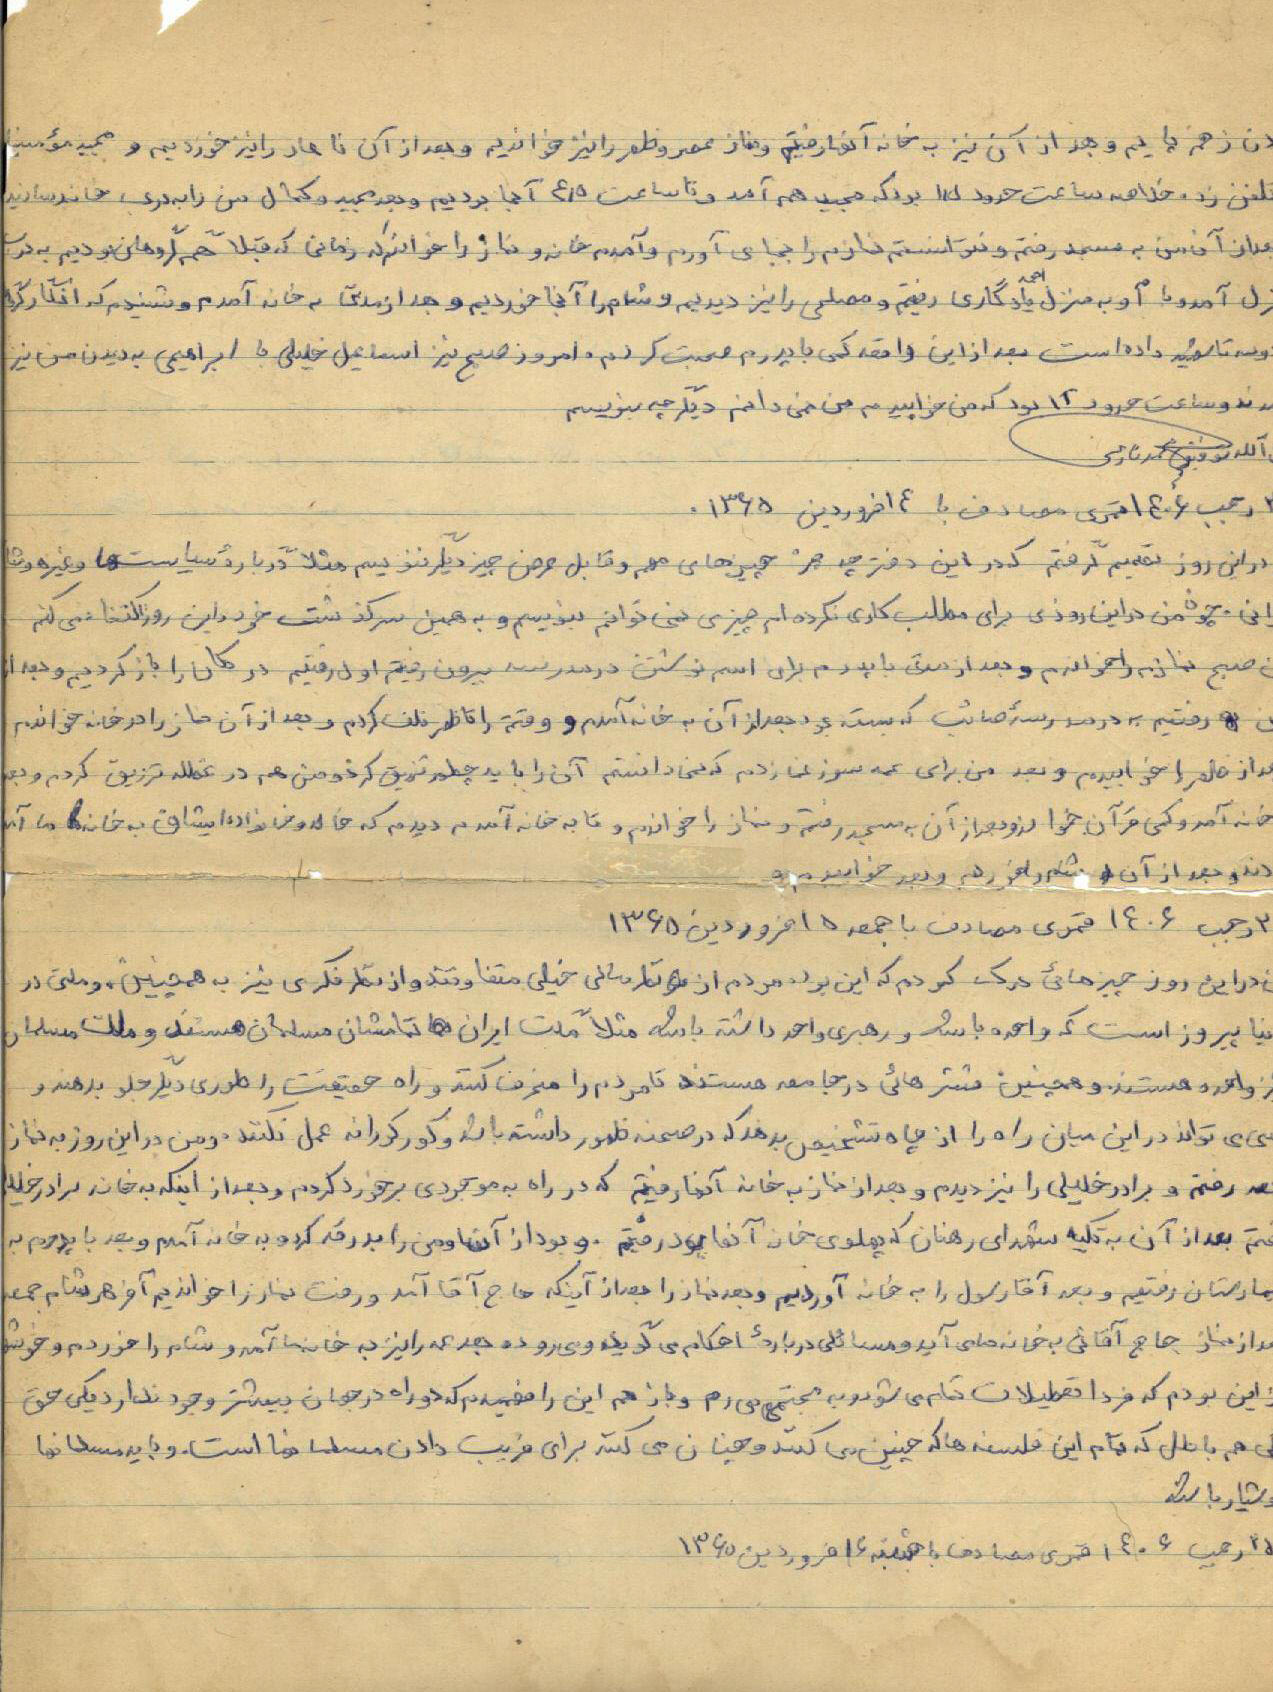 زهم پایم و بعد از آن نیز به خانه آنها رفتیم و نماز عصر و ظهر را نیز خواندیم و بعد از آن ناهار را نیز خوردیم و مجید مؤمنیان
تلفن زد. خلاصه ساعت حدود بود که مجید هم آمد و تا ساعت ۴/۵ آنجا بودیم و بعد مجید و کمال من را به درب خانه رسانیدند
بعد از آن من به مسجد رفتم و نتوانستم نمازم را بجای آورم و آمدم خانه و نماز را خواندم که زمانی که قبلاً هم گروهان بودیم به درب
منزل آمد و با او به منزل احمد یادگاری رفتیم و مصلحی را نیز دیدیم و شام را آنجا خوردیم و بعد از مدتی به خانه آمدم و شنیدم که
داده است بعد از این واقعه کمی با پدرم صحبت کردم. امروز صبح نیز اسماعیل خلیلی با ابراهیمی به دیدن من نیز
آمدند و ساعت حدود ۱۲ بود که من خوابیدم من نمی دانم دیگر چه بنویسم
رجب ۱۴۰۶ قمری مصادف با ۱۴ فروردین ۱۳۶۵.
در این روز تصمیم گرفتم که در این دفترچه جز چیزهای مهم و قابل عرض چیز دیگر ننویسم مثلاً دربارهٔ سیاست‌ها و غیره و
چون من در این روزی برای مطالب کاری نکرده ام چیزی نمی توانم بنویسم و به همین سرگذشت خود در این روز اکتفا می کنم
من صبح نمازم را خواندم و بعد از مدتی با پدرم برای اسم نوشتن در مدرسه بیرون رفتیم اول رفتیم در دکان را باز کردیم و بعد از
رفتیم به درب مدرسهٔ صائب که بسته بود بعد از آن به خانه آمدم و وقتم را تا ظهر تلف کردم و بعد از آن نماز را در خانه خواندم
بعد از ظهر را خوابیدم و بعد من برای عمه سوزن زدم که نمی دانستم آن را باید چطور تزریق کرد و من هم در عضله تزریق کردم و بعد
خانه آمد و کمی قرآن خواندم و بعد از آن به مسجد رفتم و نماز را خواندم و تا به خانه آمدم دیدم که خاله و خانواده ایشان به خانه ما آمده
و بعد از آن شام را خوردیم و بعد خوابیدم
رجب ۱۴۰۶ قمری مصادف با جمعه ۱۵ فروردین ۱۳۶۵
من در این روز چیزهائی درک کردم که این بود مردم از نظر مالی خیلی متفاوتند و از نظر فکری نیز به همچنین، و ملتی در
دنیا پیروز است که واحده باشد و رهبری واحد داشته باشد مثلاً ملت ایران تمامشان مسلمان هستند و ملت مسلمان
نیز واحده هستند. و همچنین قشرهائی در جامعه هستند تا مردم را منحرف کنند و راه حقیقت را طوری دیگر جلو بدهند و
کسی می تواند در این میان راه را از چاه تشخیص بدهد که در صحنه ظهور داشته باشد و کورکورانه عمل نکند. و من در این روز به نماز
جمعه رفتم و برادر خلیلی را نیز دیدم و بعد از نماز به خانه آنها رفتیم که در راه به موجودی برخورد کردم و بعد از اینکه به خانه برادر خلیلی
رفتم بعد از آن به تکیه شهدای رهنان که پهلوی خانه آنها بود رفتیم. و بعد از آن او من را بدرقه کرد و به خانه آمدم و بعد با پدرم به
بیمارستان رفتیم و بعد آقا رسول را به خانه آوردیم و بعد نماز را بعد از اینکه حاج آقا آمد و رفت نماز را خواندیم آخر هر شام جمعه
بعد از نماز حاج آقائی به خانه ما می آید و مسائلی دربارهٔ احکام می گوید و می رود و بعد عمه را نیز به خانه ما آمد و شام را خوردم و
از این بودم که فردا تعطیلات تمام می شود و به مجتمع می روم و باز هم این را فهمیدم که دو راه در جهان بیشتر وجود ندارد یکی حق
یکی هم باطل که تمام این فلسفه ها که چنین می کنند و چنان می کنند برای فریب دادن مسلمانها است. و باید مسلمانها
هوشیار باشند
رجب ۱۴۰۶ قمری مصادف با شنبه ۱۶ فروردین ۱۳۶۵